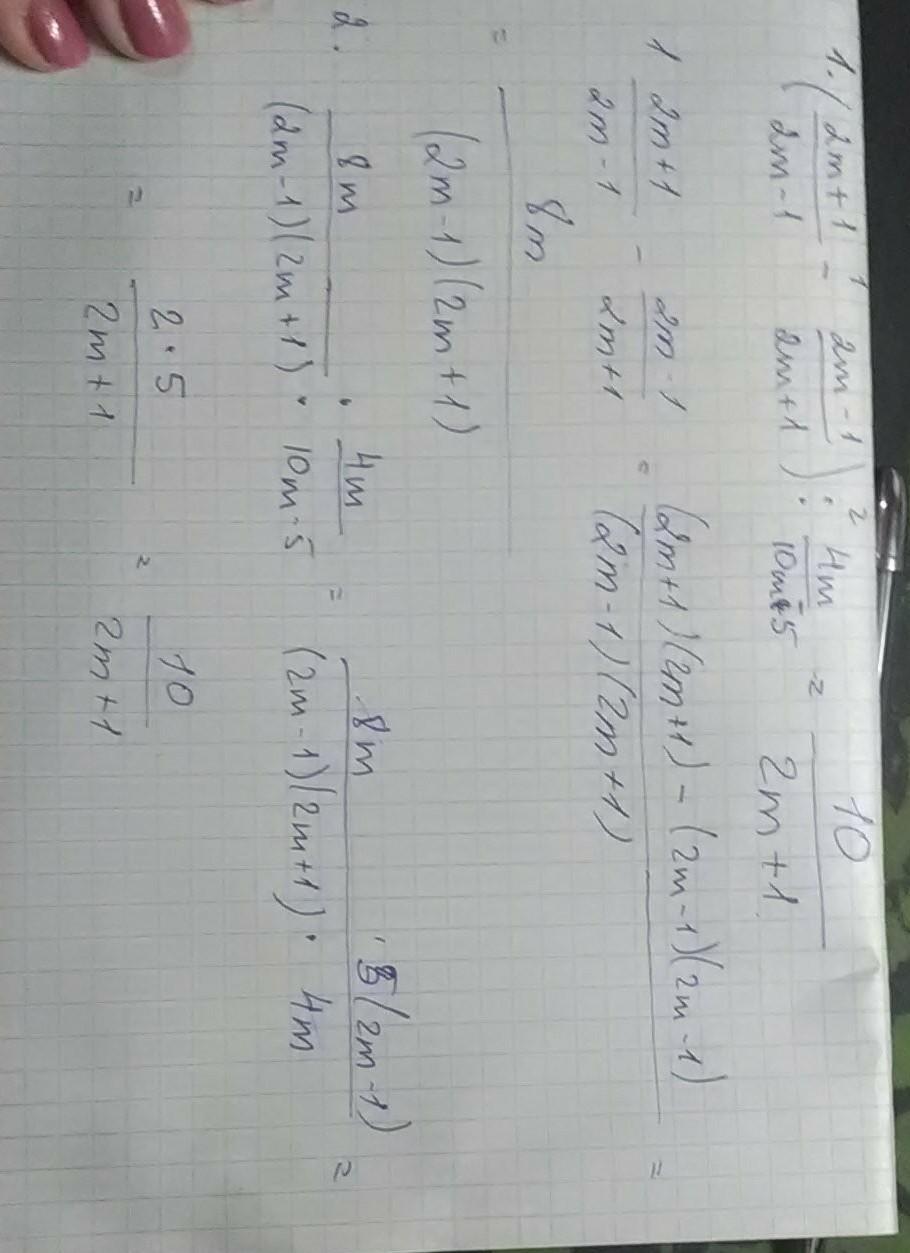 1. ( (2m+1)/(2m-1) -¹ (2m-1)/(2m+1) ) :² 4m/(10m-5) = 10/(2m+1)
1 (2m+1)/(2m-1) - (2m-1)/(2m+1) = ((2m+1)(2m+1) - (2m-1)(2m-1))/((2m-1)(2m+1)) =
= 8m/((2m-1)(2m+1))
2. 8m/((2m-1)(2m+1)) : 4m/(10m-5) = (8m · 5(2m-1))/((2m-1)(2m+1) · 4m) =
= (2·5)/(2m+1) = 10/(2m+1)